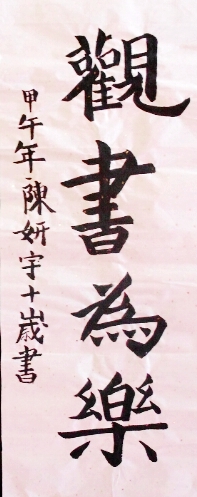 觀書為樂
甲午年陳妍宇十歲書